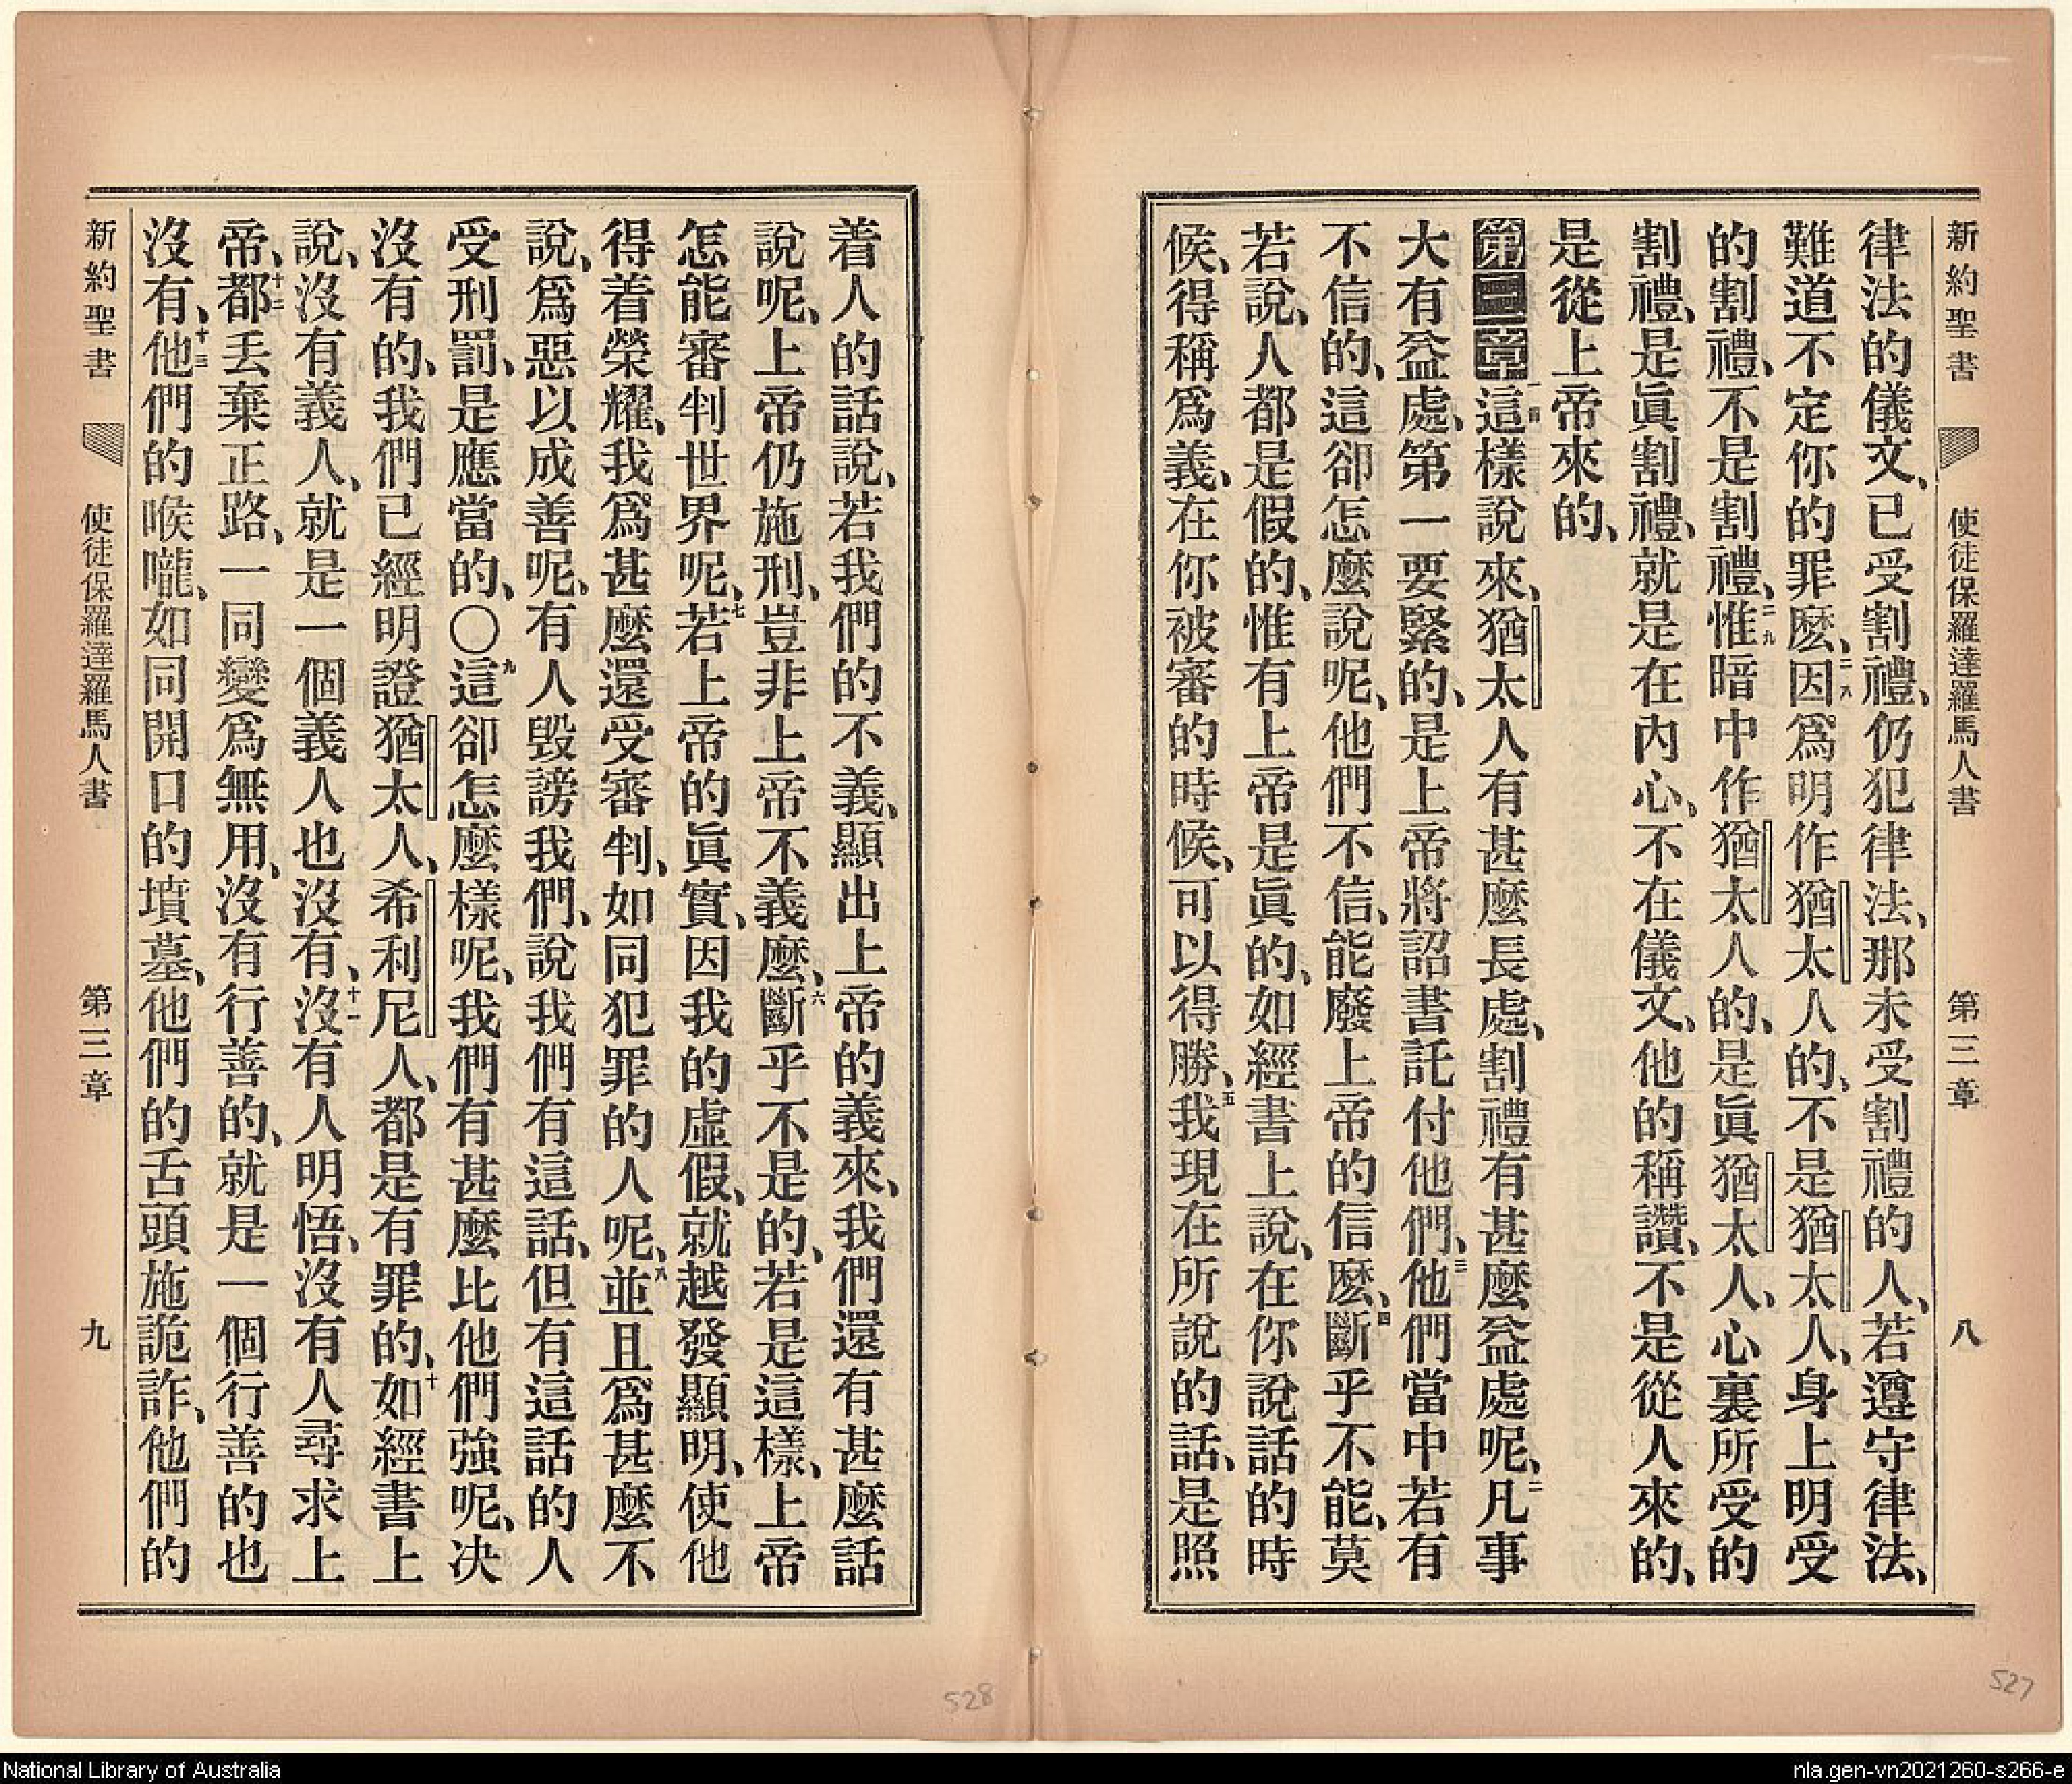 新約聖書 使徒保羅達羅馬人書 第三章 八
律法的儀文、已受割禮、仍犯律法、那未受割禮的人、若遵守律法、
難道不定你的罪麽、二八因爲明作猶太人的、不是猶太人、身上明受
的割禮、不是割禮、二九惟暗中作猶太人的、是眞猶太人、心裏所受的
割禮、是眞割禮、就是在內心、不在儀文、他的稱讚、不是從人來的、
是從上帝來的、
第三章一這樣說來、猶太人有甚麼長處、割禮有甚麼益處呢、二凡事
大有益處、第一要緊的、是上帝將詔書託付他們、三他們當中若有
不信的、這卻怎麼說呢、他們不信、能廢上帝的信麽、四斷乎不能、莫
若說、人都是假的、惟有上帝是眞的、如經書上說、在你說話的時
候、得稱爲義、在你被審的時候、可以得勝、五我現在所說的話、是照
着人的話說、若我們的不義、顯出上帝的義來、我們還有甚麼話
說呢、上帝仍施刑、豈非上帝不義麽、六斷乎不是的、若是這樣、上帝
怎能審判世界呢、七若上帝的眞實、因我的虛假、就越發顯明、使他
得着榮耀、我爲甚麼還受審判、如同犯罪的人呢、八並且爲甚麼不
說、爲惡以成善呢、有人毀謗我們、說我們有這話、但有這話的人
受刑罰、是應當的、〇九這卻怎麼樣呢、我們有甚麼比他們強呢、決
沒有的、我們已經明證猶太人、希利尼人、都是有罪的、十如經書上
說、沒有義人、就是一個義人也沒有、十一沒有人明悟、沒有人尋求上
帝、十二都丢棄正路、一同變爲無用、沒有行善的、就是一個行善的也
沒有、十三他們的喉嚨、如同開口的墳墓、他們的舌頭施詭詐、他們的
新約聖書 使徒保羅達羅馬人書 第三章 九
528
527
National Library of Australia
nla.gen-vn2021260-s266-e